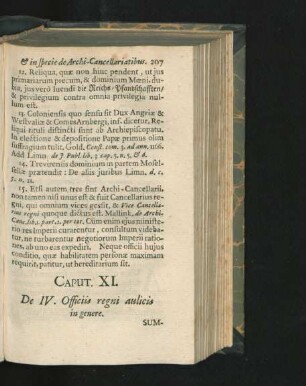 & in specie de Archi-Cancellariatibus. 207
12. Reliqua, quæ non hinc pendent, ut jus
primariarum precum, & dominium Mœni, du-
bia, jus verò luendi die Reichs-Pfandtschafften/
& privilegium contra omnia privilegia nul-
lum est.
13. Coloniensis quo sensu sit Dux Angriæ &
Westvaliæ & Comes Arnbergi, inf. dicetur, Reli-
qui tituli distincti sunt ab Archiepiscopatu,
In electione & depositione Papæ primus olim
suffragium tulit, Gold. Const. com. 3. ad ann. 1116.
Add. Limn. de J. Publ. lib. 3 cap. 5. n. 5. & 6.
14. Trevirensis dominium in partem Mosel-
læ sibi prætendit: De aliis juribus Limn. d. c.
15. Etsi autem tres sint Archi-Cancellarii,
non tamen nisi unus est & fuit Cancellarius re-
gni, qui omnium vices gessit, & Vice Cancella-
rius regni quoque dictus est. Mallink. de Archi-
Canc. lib. 1. part. 2. per tot. Cùm enim ejus ministe-
rio res Imperii currerent, consultum videba-
tur, ne turbarentur negotiorum Imperii ratio-
nes, ab uno eas expediri. Neque officii hujus
conditio, quæ habilitatem personæ maximam
requirit, patitur, ut hereditarium sit.
CAPUT. XI.
De IV. Officiis regni aulicis
in genere.
SUM-